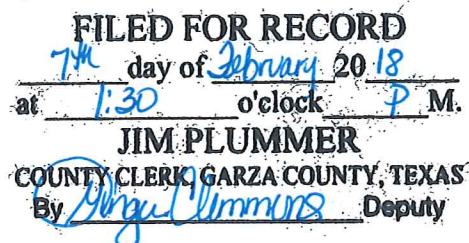 FILED FOR RECORD
7th day of February 20 18
at 1:30 o'clock P M.
JIM PLUMMER
COUNTY CLERK, GARZA COUNTY, TEXAS
By Clemmons Deputy